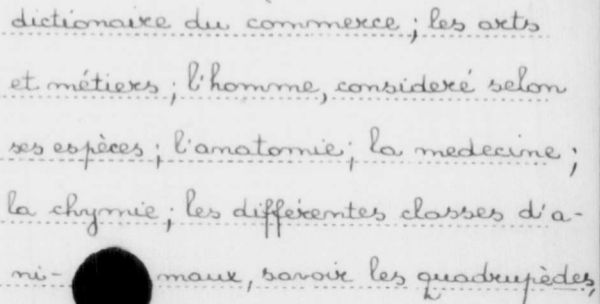 dictionaire du commerce ; les arts
et métiers ; l'homme, consideré selon
ses espèces ; l'anatomie ; la medecine ;
la chymie ; les différentes classes d'a-
ni- maux, savoir les quadrupèdes,